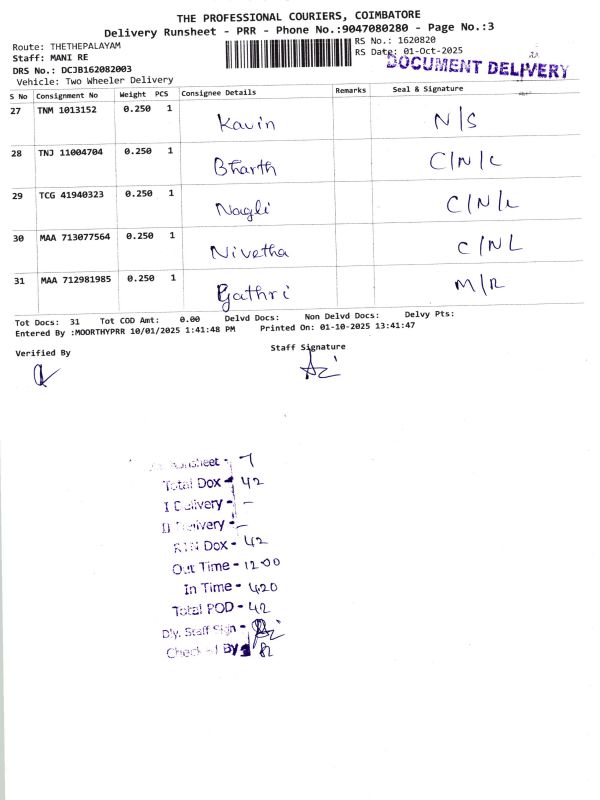 THE PROFESSIONAL COURIERS, COIMBATORE
Delivery Runsheet - PRR - Phone No.:9047080280 - Page No.:3
Route: THETHEPALAYAM RS No.: 1620820
Staff: MANI RE RS Date: 01-Oct-2025
DOCUMENT DELIVERY
DRS No.: DCJB162082003
Vehicle: Two Wheeler Delivery
S No Consignment No Weight PCS Consignee Details Remarks Seal & Signature
27 TNM 1013152 0.250 1 Kavin N/S
28 TNJ 11004704 0.250 1 Bharth C/N/L
29 TCG 41940323 0.250 1 Nagli C/N/L
30 MAA 713077564 0.250 1 Nivetha C/NL
31 MAA 712981985 0.250 1 Gathri M/R
Tot Docs: 31 Tot COD Amt: 0.00 Delvd Docs: Non Delvd Docs: Delvy Pts:
Entered By :MOORTHYPRR 10/01/2025 1:41:48 PM Printed On: 01-10-2025 13:41:47
Verified By Staff Signature
Runsheet - 7
Total Dox - 42
I Delivery - -
II Delivery - -
RTN Dox - 42
Out Time - 12-00
In Time - 4.20
Total POD - 42
Dly. Staff Sign -
Checked By